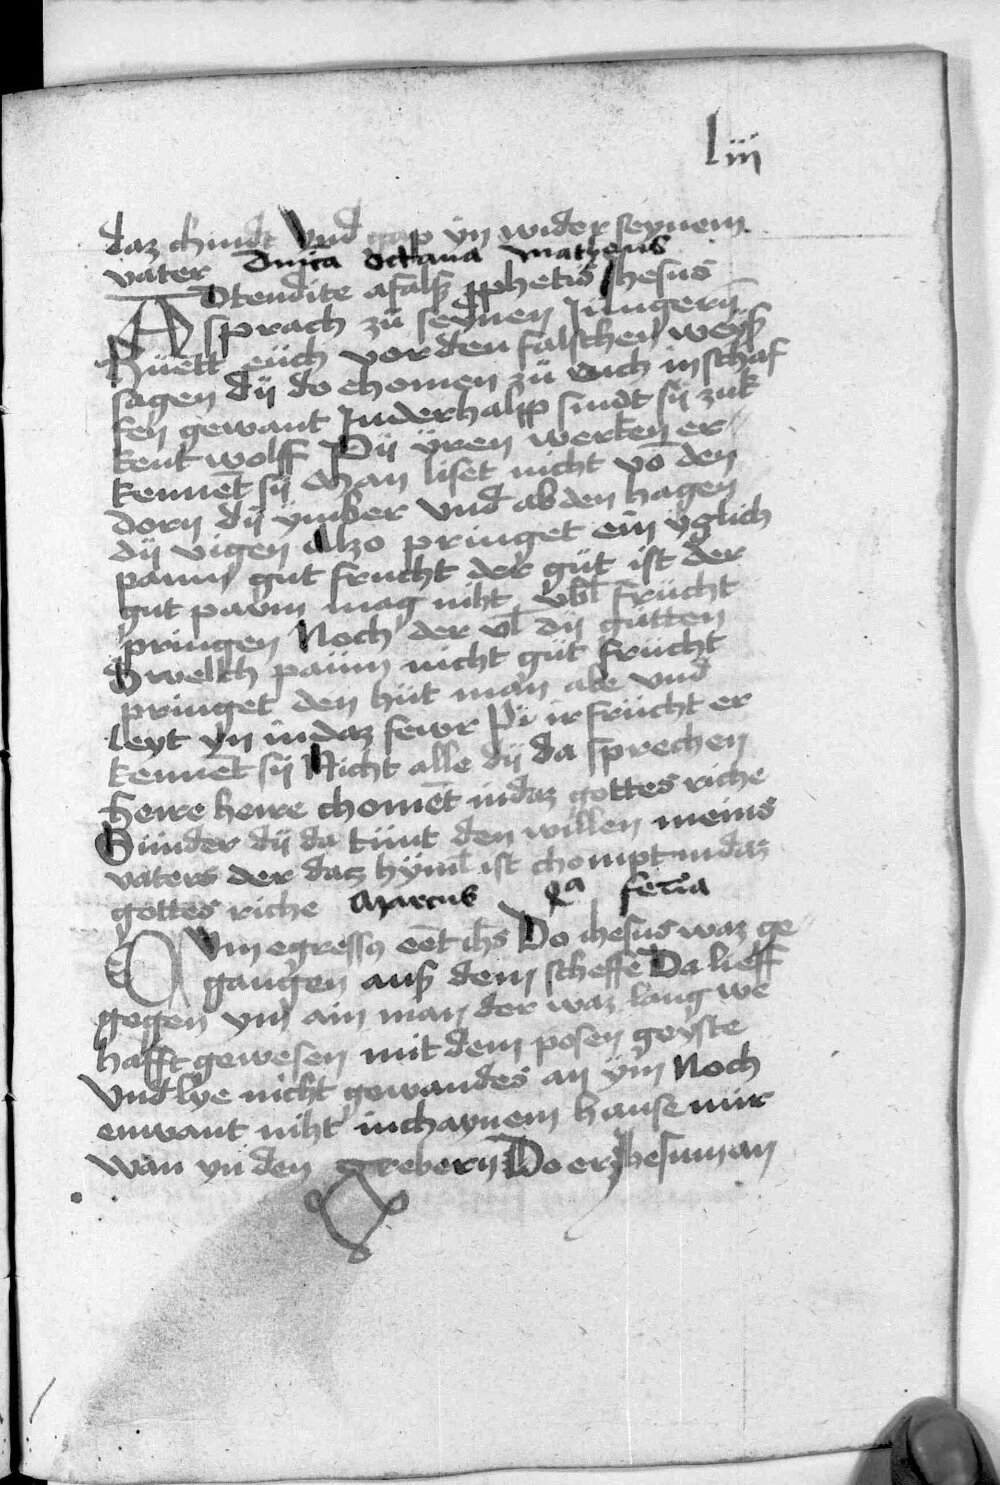 liii
daz chindt Vnd gap yn wider seynem
vater Dnica octaua matheus
Attendite a falß pphetis Jhesus
sprach zü seynen Jüngerñ
Hüett eüch vor den falschen weyß
sagen dÿ do chomen zü euch in schaf
fen gewant Inderhalp sindt sÿ zuk
kent wolff Pÿ ÿren werken er
kennēt sÿ Man liset nicht vō den
dorn dÿ ymber Vnd ab den hagen
dÿ vigen Alzo pringet ein yglich
paum gut frucht der güt ist der
gut paum mag niht vbl frücht
pringen Noch der vl dÿ gütten
Swelch paüm nicht güt frücht
pringet den hüt man abe vnd
leyt yn in daz fewr Pÿ ir frücht er
kennēt sÿ Nicht alle dÿ da sprechen
herre herre chomēt in daz gottes riche
Sünder dÿ da tünt den willen meins
vaters der daz hyml ist chompt in daz
gottes riche Marcus Qa feria
CVm egressq eēt ihs Do ihesus waz ge
gangen auß dem scheffe Da lieff
gegen ym ain man der waz lang we
hafft gewesen mit dem posen geyste
Vnd lye nicht gewandes an ym Noch
enwant niht in chaynem hause nür
wan yn den greberñ Do er Jhesum an